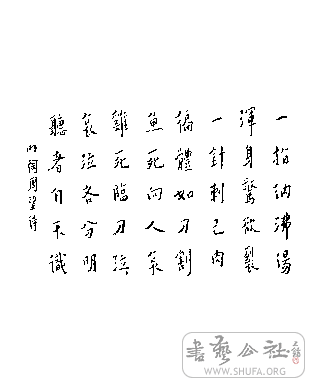 一指納沸湯
渾身驚欲裂
一針刺己肉
徧體如刀割
魚死向人哀
雞死臨刀泣
哀泣各分明
聽者自不識
明陶周望詩
書藝公社
WWW.SHUFA.ORG